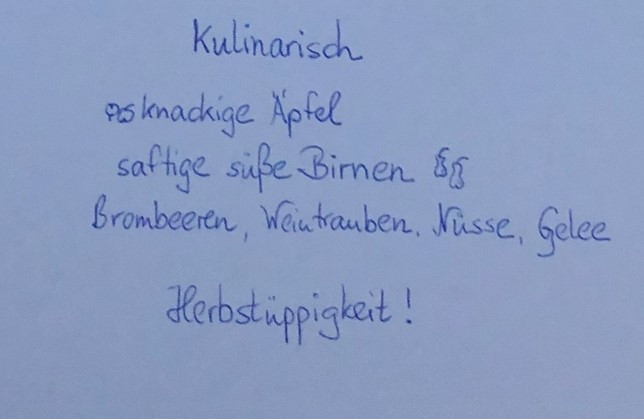 Kulinarisch
knackige Äpfel
saftige süße Birnen §§
Brombeeren, Weintrauben, Nüsse, Gelee
Herbstüppigkeit!